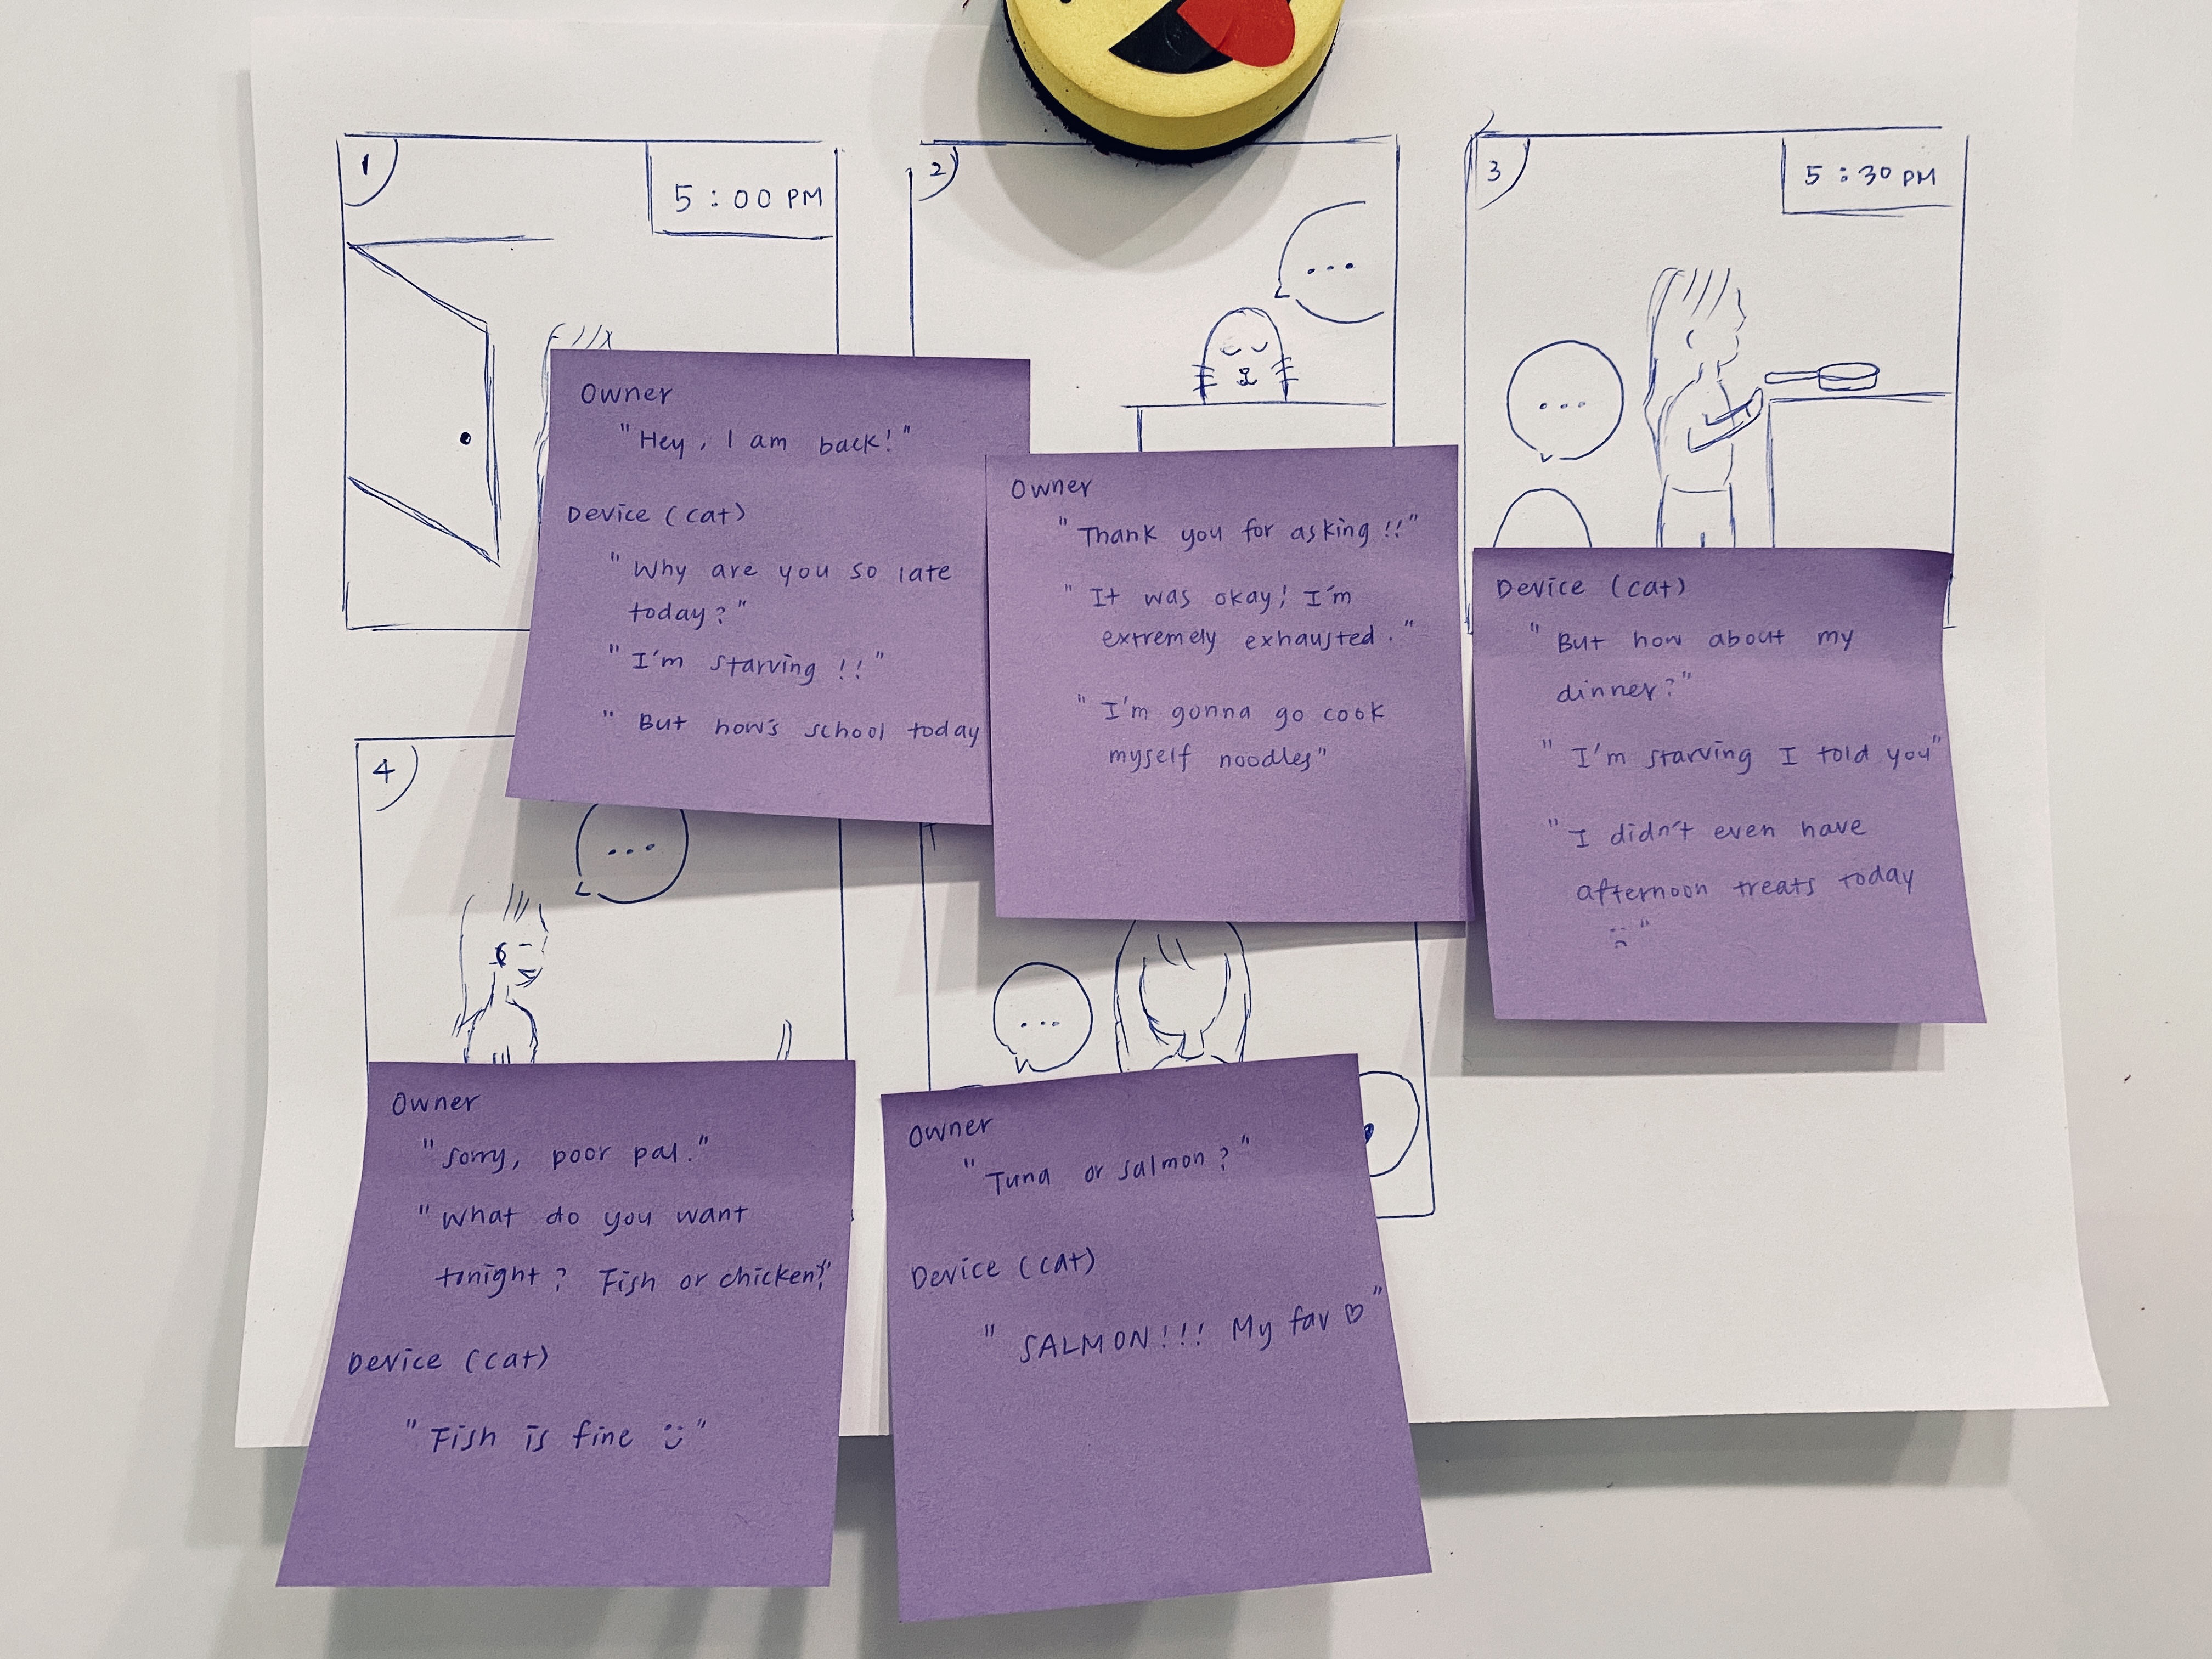 1
5:00 PM
2
...
3
5:30 PM
...
Owner
"Hey, I am back!"
Device (cat)
"Why are you so late
today?"
"I'm starving!!"
"But how's school today
Owner
"Thank you for asking!!"
"It was okay! I'm
extremely exhausted."
"I'm gonna go cook
myself noodles"
Device (cat)
"But how about my
dinner?"
"I'm starving I told you"
"I didn't even have
afternoon treats today
:("
4
...
...
Owner
"Sorry, poor pal."
"What do you want
tonight? Fish or chicken?"
Device (cat)
"Fish is fine :)"
Owner
"Tuna or salmon?"
Device (cat)
"SALMON!!! My fav ♡"